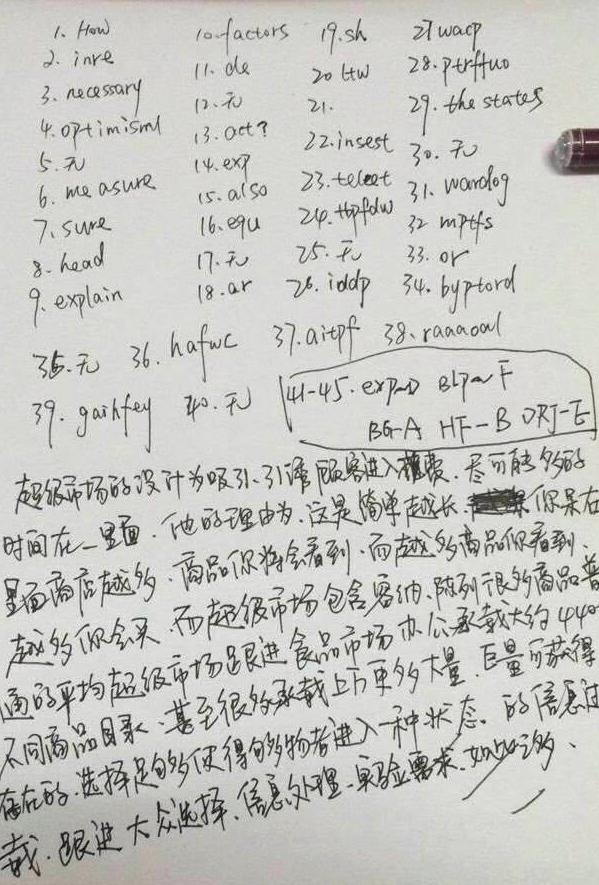 1. How 10. factors 19. sh 27 wacp
2. inre 11. de 20 ltw 28. ptrffuo
3. necessary 12. 无 21. 29. the states
4. optimisml 13. act? 22. insest 30. 无
5. 无 14. exp 23. teleet 31. wandog
6. measure 15. also 24. 32 mptfs
7. sure 16. equ 25. 无 33. or
8. head 17. 无 26. iddp 34. byptord
9. explain 18. ar
35. 无 36. hafwc 37. aitpf 38. raaaoal
39. gaihfey 40. 无 41-45. exp~D BLP~F
BG-A HF-B DRJ-E
超级市场的设计为吸引、引诱顾客进入 尽可能多的
时间在一里面. 他的理由为. 这是简单越长 你呆在
里面商店越多. 商品你将会看到. 而越多商品你看到.
越多你会买. 而超级市场包含容纳. 陈列很多商品普
通的平均超级市场跟进食品市场 承载大约 440
不同商品目录. 甚至很多承载上下更多大量. 巨量可获得
存在的. 选择足够多使得 物者进入一种状态. 的信息过
载. 跟进大众选择. 信息处理. 要求. 如此之多.